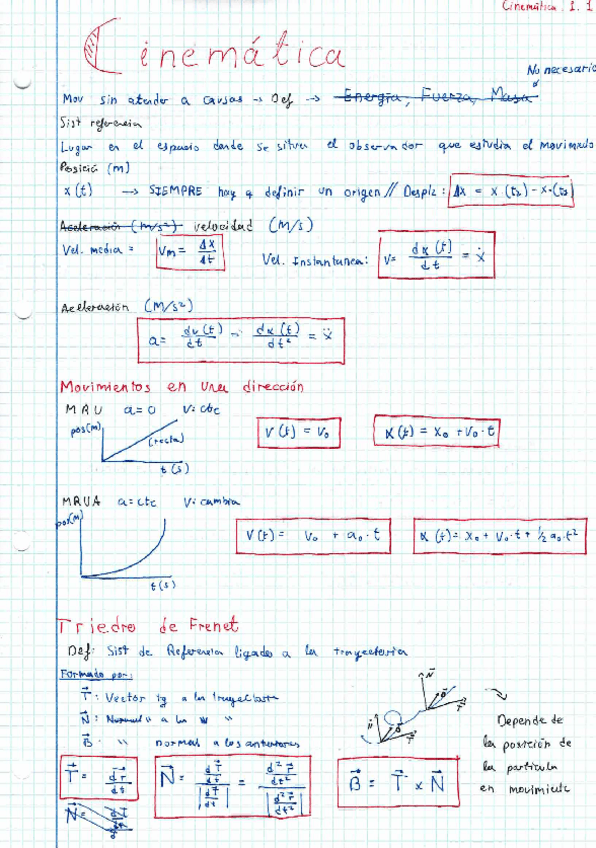 Cinemática. 1. 1
Cinemática
No necesario
Mov sin atender a causas → Def → Energía, Fuerza, Masa
Sist referencia
Lugar en el espacio donde se situa el observador que estudia el movimiento
Posición (m)
x(t) → SIEMPRE hay q definir un origen // Despl: Δx = x(t₂) - x(t₁)
Aceleración (m/s²) velocidad (m/s)
Vel. media = Vm = Δx/Δt Vel. Instantanea: v = dx(t)/dt = ẋ
Aceleración (m/s²)
a = dv(t)/dt → dx(t)/dt² = ẍ
Movimientos en una dirección
MRU a=0 V: cte V(t) = V₀ x(t) = x₀ + v₀·t
pos(m)
(recta)
t(s)
MRUA a=cte V: cambia
pos(m) V(t) = V₀ + a₀·t x(t) = x₀ + v₀·t + ½ a₀·t²
t(s)
Triedro de Frenet
Def: Sist de Referencia ligado a la trayectoria
Formado por:
T⃗: Vector tg a la trayectoria
N⃗: Normal " a la " "
B⃗: " normal a los anteriores
N⃗ B⃗ T⃗
N⃗ B⃗ T⃗
Depende de
la posición de
la particula
en movimiento
T⃗ = dr⃗/dt N⃗ = (dT⃗/dt)/|dT⃗/dt| = (d²r⃗/dt²)/|d²r⃗/dt²| B⃗ = T⃗ × N⃗
N⃗ =